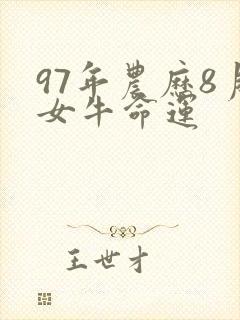 97年農歷8月
女牛命運
王世才